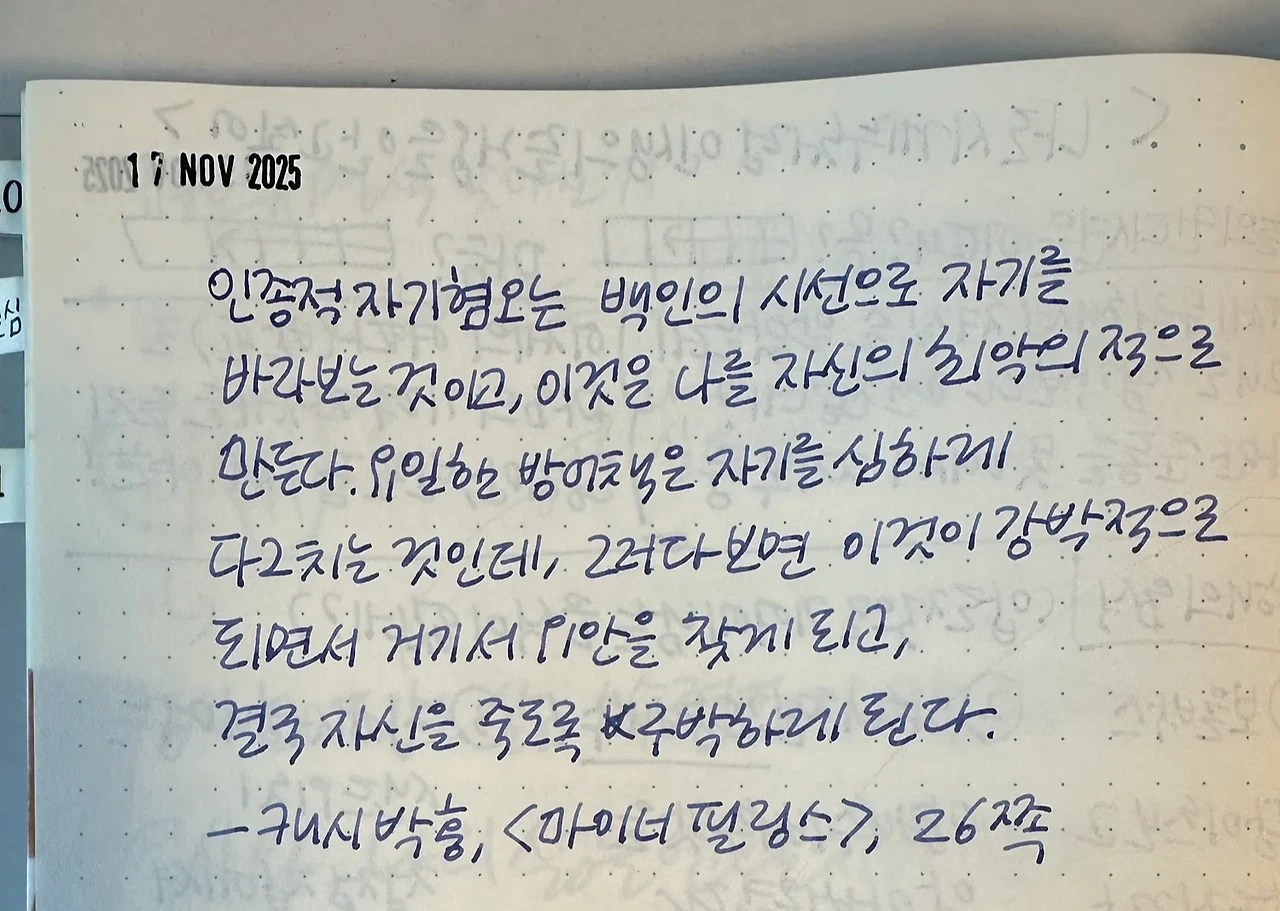 17 NOV 2025
인종적 자기혐오는 백인의 시선으로 자기를
바라보는 것이고, 이것을 나를 자신의 최악의 적으로
만든다. 유일한 방어책은 자기를 심하게
다그치는 것인데, 그러다 보면 이것이 강박적으로
되면서 거기서 위안을 찾게 되고,
결국 자신을 죽도록 구박하게 된다.
— 캐시 박 홍, <마이너 필링스>, 26쪽